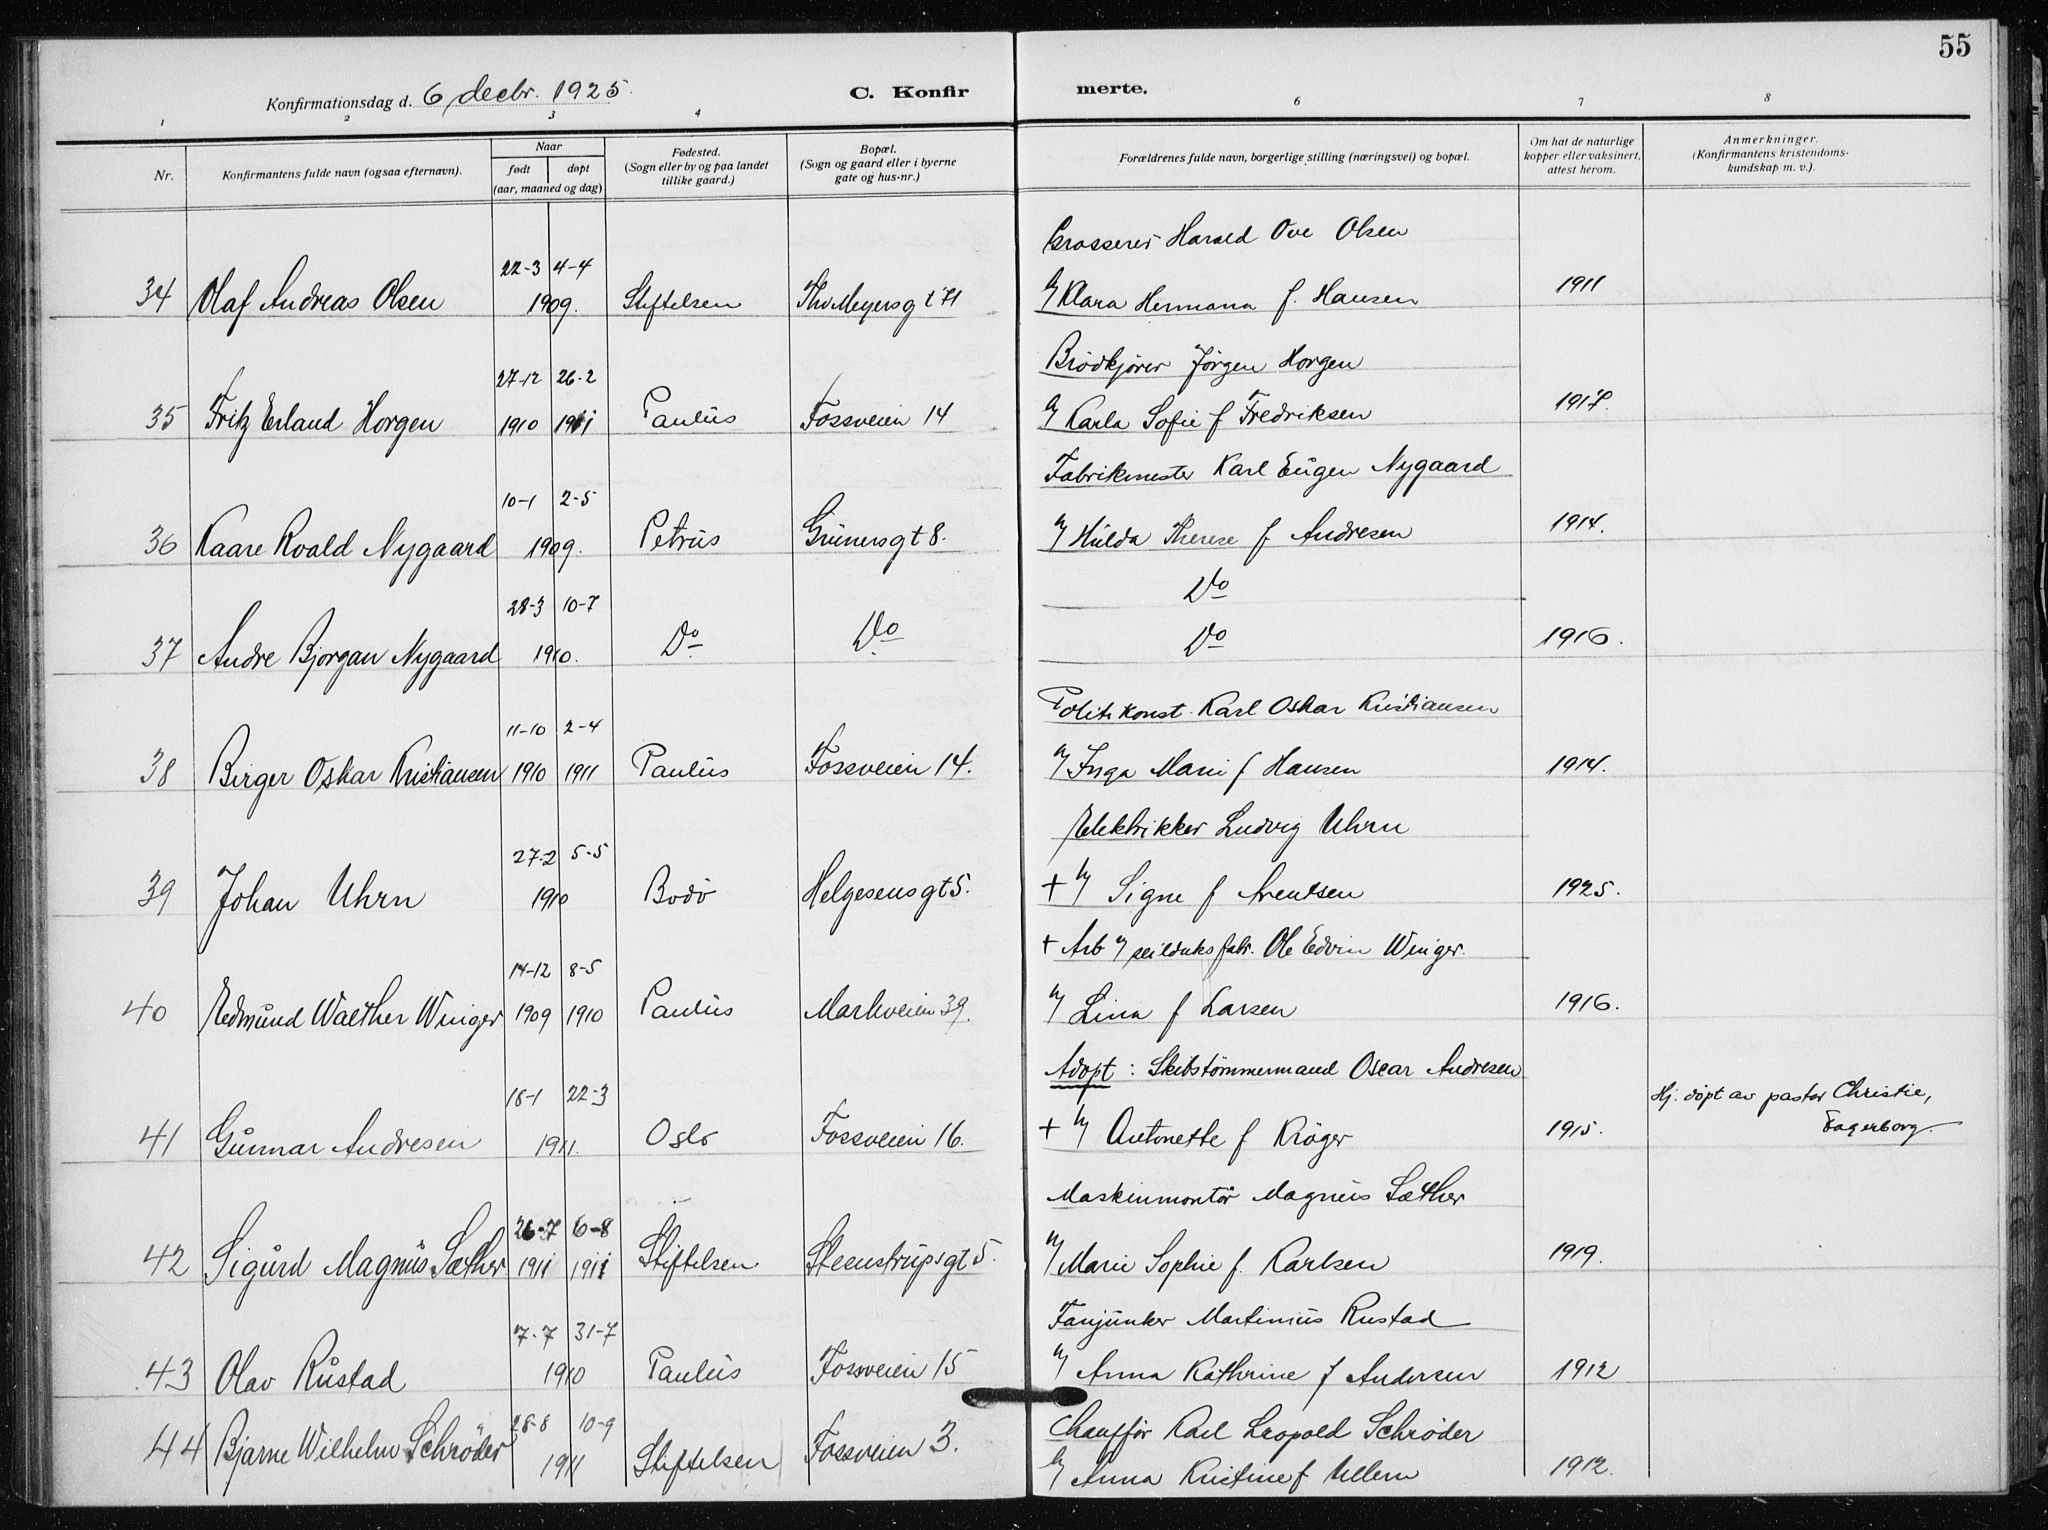 55
Konfirmationsdag d. 6 decbr. 1925.
C. Konfir merte.
1 2 3 4 6 7 8
Nr.
Konfirmantens fulde navn (ogsaa efternavn).
Naar
født døpt
(aar, maaned og dag)
Fødested.
(Sogn eller by og paa landet
tillike gaard.)
Bopæl.
(Sogn og gaard eller i byerne
gate og hus-nr.)
Forældrenes fulde navn, borgerlige stilling (næringsvei) og bopæl.
Om hat de naturlige
kopper eller vaksinert,
attest herom.
Anmerkninger.
(Konfirmantens kristendoms-
kundskap m. v.).
Grosserer Harald Ove Olsen
22-3 4-4
34 Olaf Andreas Olsen 1909. Stiftelsen Thv Meyersgt 71 Klara Hermana f. Hansen 1911
Brödkjører Jørgen Horgen
27-12 26-2
35 Fritz Erland Horgen 1910 1911 Paulus Fossveien 14 Karla Sofie f Fredriksen 1917.
Fabrikmester Karl Eugen Nygaard
10-1 2-5
36 Kaare Roald Nygaard 1909. Petrus Grünersgt 8. Hulda Therese f Andresen 1914.
Do
28-3 10-7
37 Andre Bjorgan Nygaard 1910. Do Do Do 1916.
Politikonst. Karl Oskar Kristiansen
11-10 2-4
38 Birger Oskar Kristiansen 1910 1911 Paulus Fossveien 14. Inga Marie f Hansen 1914.
Elektrikker Ludvig Uhrn
27-2 5-5
39 Johan Uhrn 1910 Bodö Helgesensgt 5. + Signe f Arentsen 1925.
+ Arb seilduksfabr. Ole Edvin Winger.
14-12 8-5
40 Edmund Walther Winger 1909 1910 Paulus Markveien 39. Lina f Larsen 1916.
Adopt: Skibstömmermand Oscar Andresen
18-1 22-3
Hj. döpt av pastor Christie,
41 Gunnar Andresen 1911. Oslo Fossveien 16. + Antonette f Kröger 1915. Fagerborg.
Maskinmontör Magnus Sæther
26-7 6-8
42 Sigurd Magnus Sæther 1911 1911 Stiftelsen Steenstrupsgt 5. Marie Sophie f. Karlsen 1919.
Fanjunker Martinius Rustad
7-7 31-7
43 Olav Rustad 1910 Paulus Fossveien 15 Anna Kathrine f Andersen 1912
28-8 10-9
Chauffør Karl Leopold Schrøder
44 Bjarne Wilhelm Schrøder 1911 Stiftelsen Fossveien 3. Anna Kristine f Ullern 1912.